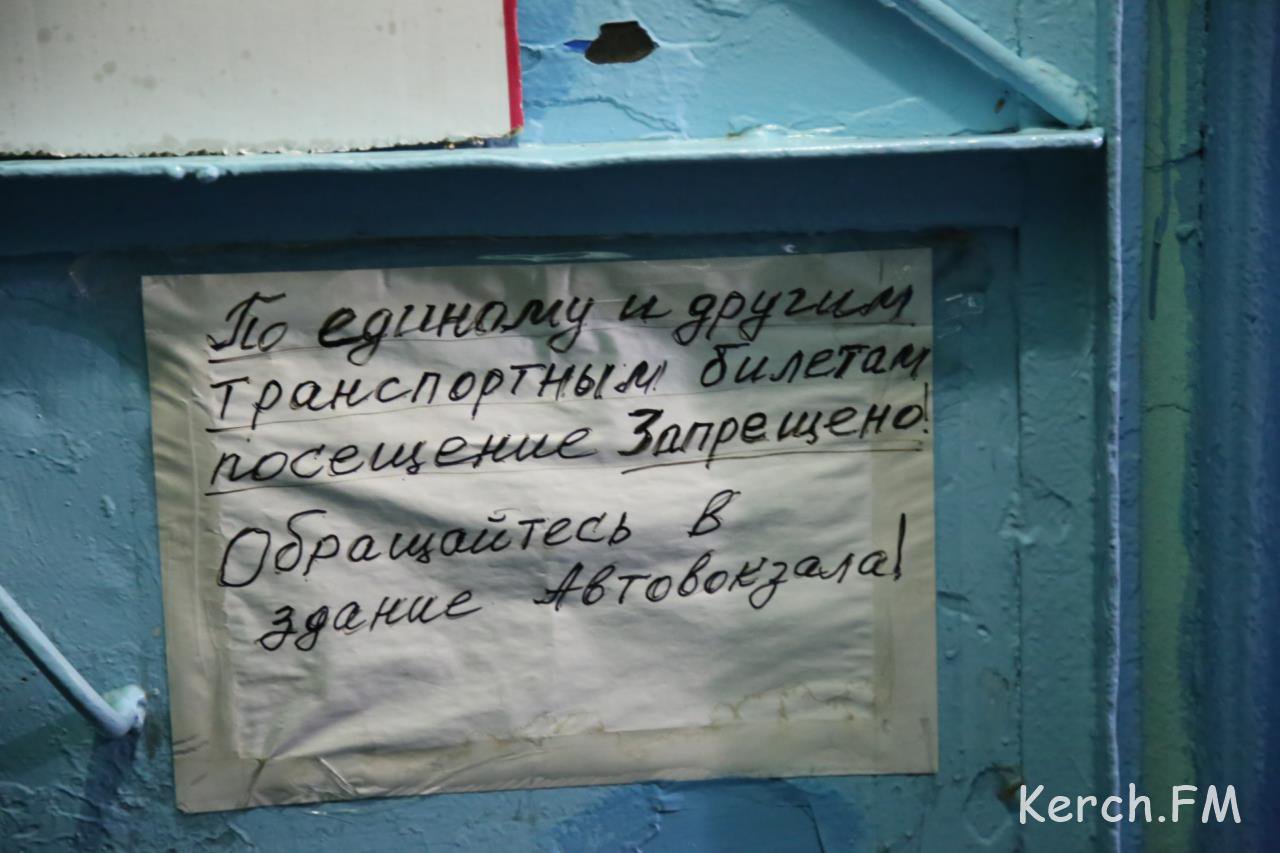 По единому и другим
транспортным билетам
посещение Запрещено!
Обращайтесь в
здание Автовокзала!
Kerch.FM